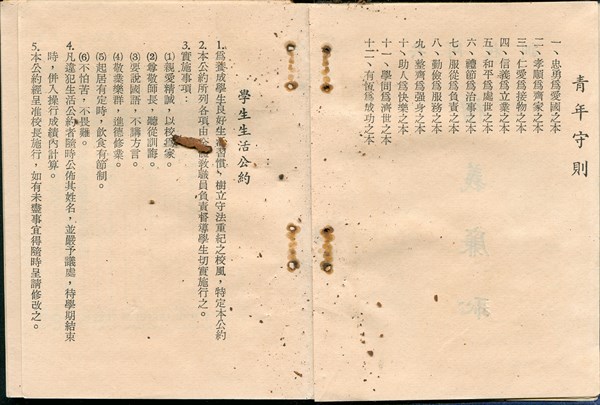 青年守則
一、忠勇爲愛國之本
二、孝順爲齊家之本
三、仁愛爲接物之本
四、信義爲立業之本
五、和平爲處世之本
六、禮節爲治事之本
七、服從爲負責之本
八、勤儉爲服務之本
九、整齊爲强身之本
十、助人爲快樂之本
十一、學問爲濟世之本
十二、有恆爲成功之本
學生生活公約
1.爲養成學生良好生活習慣，樹立守法重紀之校風，特定本公約
2.本公約所列各項由教職員負責督導學生切實施行之。
3.實施事項：
(1)親愛精誠，以校爲家。
(2)尊敬師長，聽從訓誨。
(3)要說國語，不講方言。
(4)敬業樂群，進德修業。
(5)起居有定時，飲食有節制。
(6)不怕苦，不畏難。
4.凡違犯生活公約者隨時公佈其姓名，並嚴予議處，待學期結束
時，併入操行成績內計算。
5.本公約經呈准校長施行，如有未盡事宜得隨時呈請修改之。